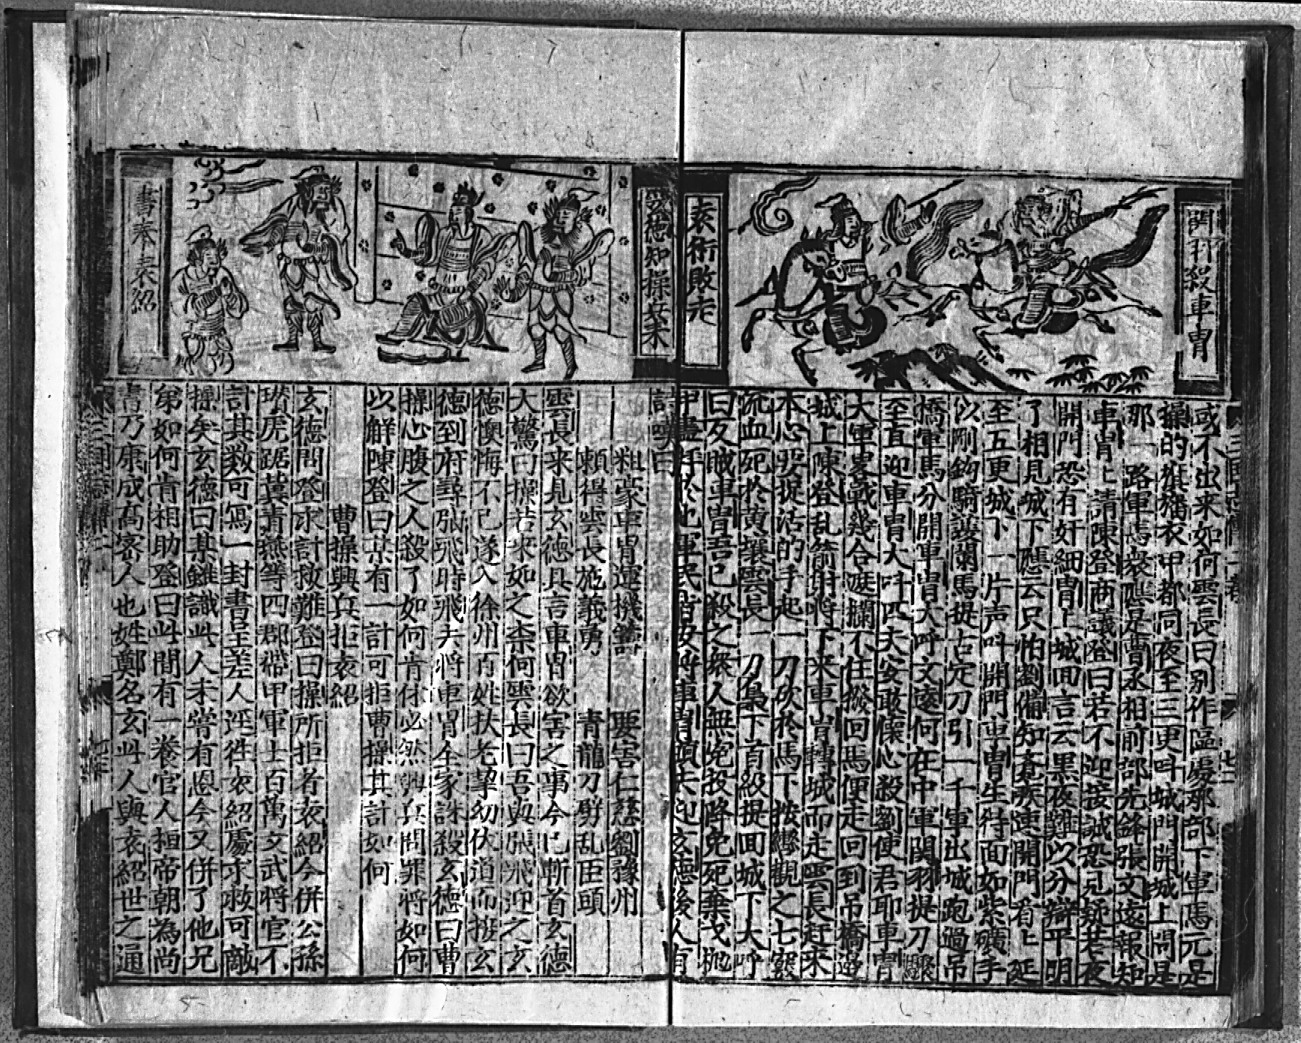 關羽殺車胄
袁術敗走
或不出来如何雲長曰別作區處那部下軍馬元是
操的旗旛衣甲都同夜至三更叫城門開城上問是
那一路軍馬衆應是曹丞相前部先鋒張文遠報知
車胄上請陳登商議登曰若不迎接誠恐見疑若夜
開門恐有奸細胄上城回言云黑夜難以分辯平明
了相見城下應云只怕劉備知竟疾速開門看上延
至五更城下一片声叫開門車胄生得面如紫礦手
以剛鈎騎騣䦨馬提占定刀引一千軍出城跑過吊
橋軍馬分開車胄大呼文遠何在中軍関羽提刀驟
至直迎車胄大呌匹夫安敢懷心殺劉使君耶車胄
大軍畧戰幾合遮攔不住撥回馬便走回到吊橋邊
城上陳登乱箭射將下来車胄轉城而走雲長赶来
本心要捉活的手起一刀砍於馬下撥轡觀之七竅
流血死於黄壤雲長一刀梟下首級提回城下大呼
曰反賊車胄吾已殺之衆人無寃投降免死棄戈抛
甲盡拜於地軍民皆安將車胄頭去迎玄德後人有
詩嘆曰
粗豪車胄運機謀 要害仁慈劉豫州
頼得雲長施義勇 青龍刀劈乱臣頭
雲長来見玄德具言車胄欲害之事今已斬首玄德
大驚曰操若来如之柰何雲長曰吾與張飛迎之玄
德懊悔不已遂入徐州百姓扶老挈幼伏道而接玄
德到府尋張飛時飛夫將車胄全家誅殺玄德曰曹
操心腹之人殺了如何肯休必然興兵問罪將如何
以解陳登曰某有一計可拒曹操其計如何
曹操興兵拒袁紹
玄德問登求計救難登曰操所拒者袁紹今併公孫
瓚虎踞冀青燕等四郡帶甲軍士百萬文武將官不
計其数可寫一封書呈差人逕徃袁紹處求救可敵
操矣玄德曰某雖識此人未嘗有恩今又併了他兄
弟如何肯相助登曰此間有一養官人桓帝朝為尚
書乃康成高密人也姓鄭名玄此人與袁紹世之通
玄德知操某
書奉袁紹